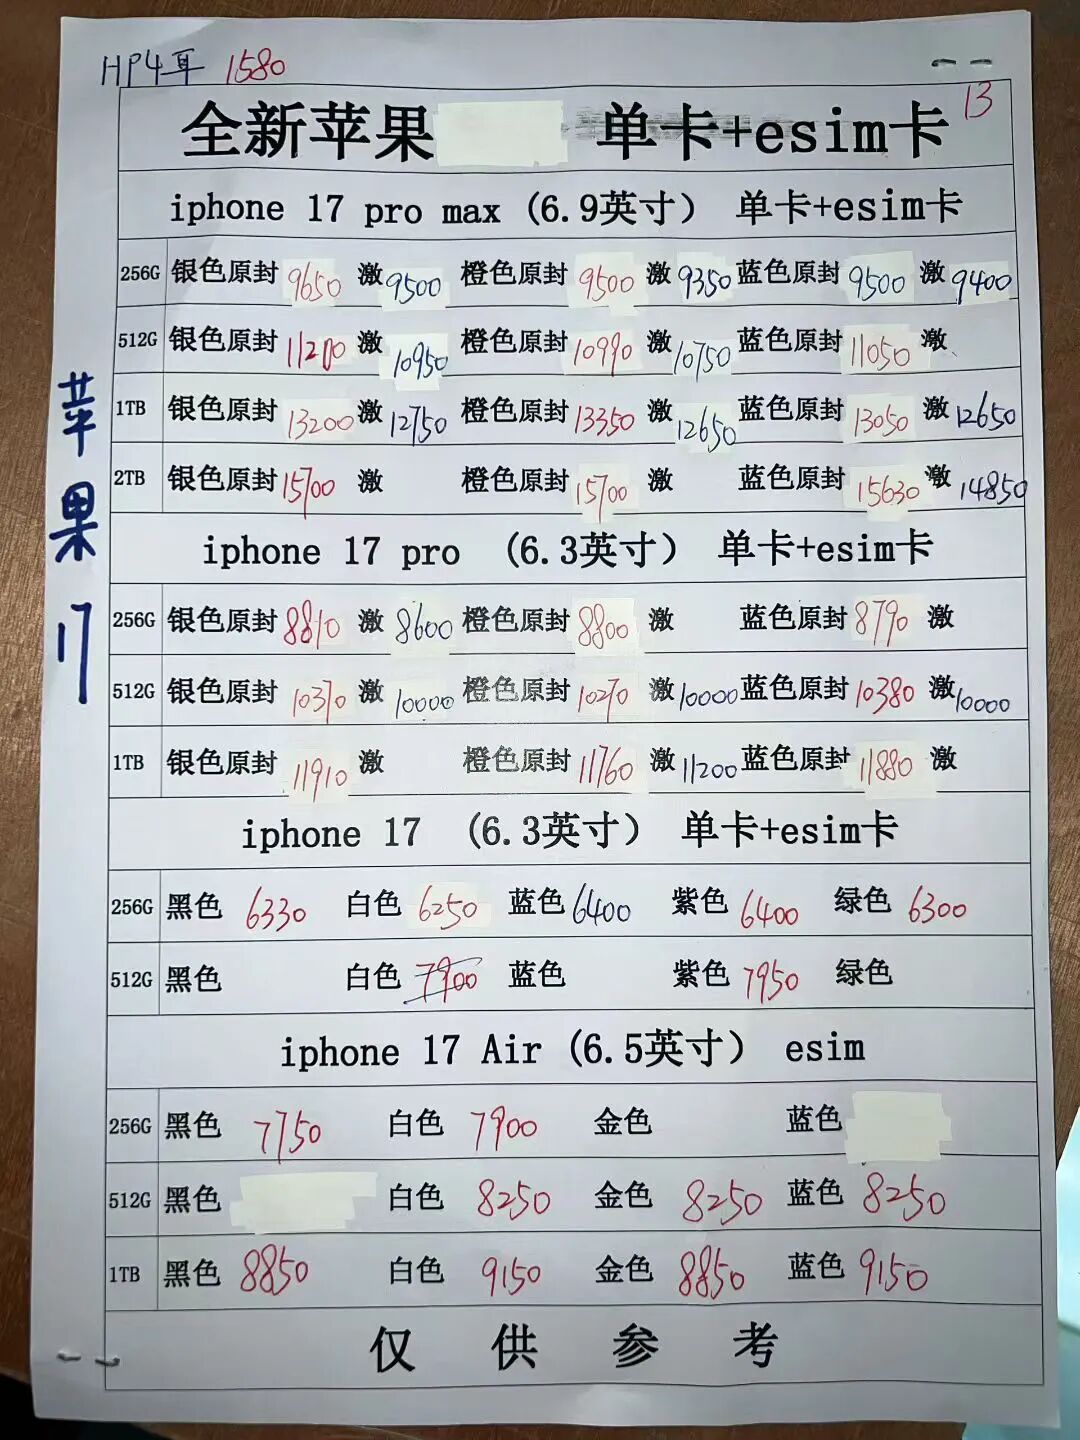 HP4耳 1580
13
全新苹果 单卡+esim卡
iphone 17 pro max (6.9英寸) 单卡+esim卡
256G 银色原封 9650 激 9500 橙色原封 9500 激 9350 蓝色原封 9500 激 9400
512G 银色原封 11200 激 10950 橙色原封 10990 激 10750 蓝色原封 11050 激
1TB 银色原封 13200 激 12750 橙色原封 13350 激 12650 蓝色原封 13050 激 12650
2TB 银色原封 15700 激 橙色原封 15700 激 蓝色原封 15630 激 14850
苹果17
iphone 17 pro (6.3英寸) 单卡+esim卡
256G 银色原封 8810 激 8600 橙色原封 8800 激 蓝色原封 8790 激
512G 银色原封 10370 激 10000 橙色原封 10270 激 10000 蓝色原封 10380 激 10000
1TB 银色原封 11910 激 橙色原封 11760 激 11200 蓝色原封 11880 激
iphone 17 (6.3英寸) 单卡+esim卡
256G 黑色 6330 白色 6250 蓝色 6400 紫色 6400 绿色 6300
512G 黑色 白色 7900 蓝色 紫色 7950 绿色
iphone 17 Air (6.5英寸) esim
256G 黑色 7750 白色 7900 金色 蓝色
512G 黑色 白色 8250 金色 8250 蓝色 8250
1TB 黑色 8850 白色 9150 金色 8850 蓝色 9150
仅供参考